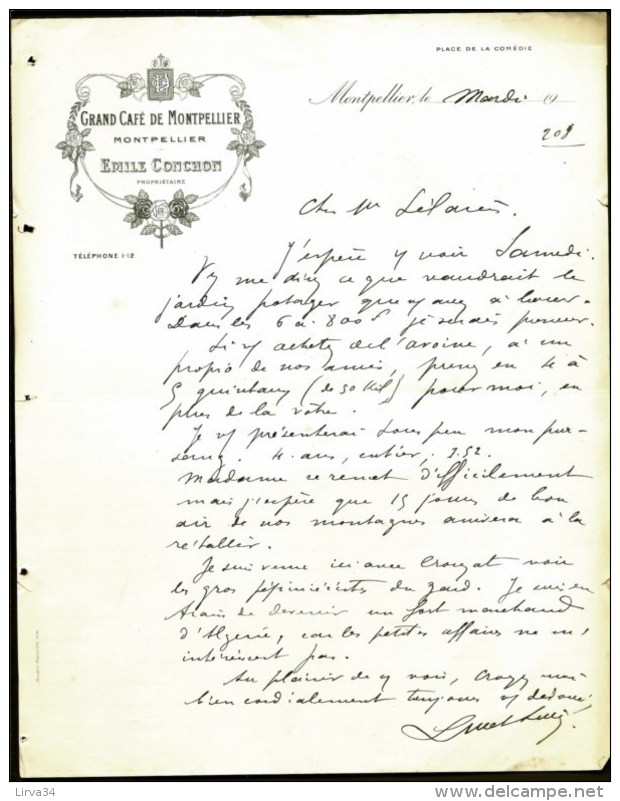 PLACE DE LA COMÉDIE
GRAND CAFÉ DE MONTPELLIER
MONTPELLIER
EMILE CONCHON
PROPRIÉTAIRE
TÉLÉPHONE 1-12
Montpellier, le Mardi 19
208
Cher Mr
J'espère y voir Samedi.
Vs me direz ce que vaudrait le
jardin potager que vs avez à louer.
Dans les 6 à 800 f je serais preneur.
Si vs achetez de l'avoine, à un
proprio de nos amis, prenez en 4 à
5 quintaux (de 50 Kil) pour moi, en
plus de la vôtre.
Je vs présenterai sous peu mon pur-
sang. 4 ans, entier, 1.52.
Madame se remet difficilement
mais j'espère que 15 jours de bon
air de nos montagnes arrivera à la
rétablir.
Je suis venu ici avec Crouzat voir
les gros pépiniéristes du Gard. Je suis en
train de devenir un fort marchand
d'Algérie, car les petites affaires ne m'
intéressent pas.
Au plaisir de vs voir, croyez moi
bien cordialement toujours vs dévoué,
Lirva34
www.delcampe.net